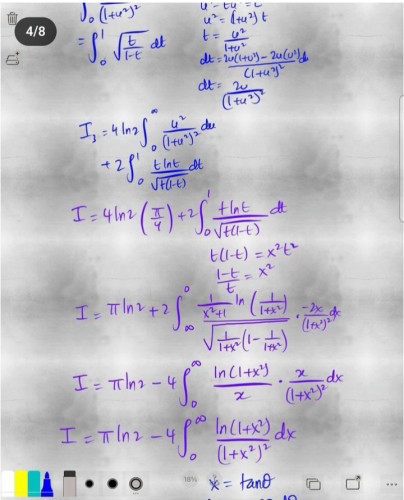 ∫₀ u²/(1+u²)² u² - tu² = t
4/8
u² = (1+u²) t
= ∫₀¹ √(t/(1-t)) dt
t = u²/(1+u²)
dt = (2u(1+u²) - 2u(u²))/(1+u²)² du
dt = 2u/(1+u²)²
I₃ = 4 ln 2 ∫₀^∞ u²/(1+u²)² du
+ 2 ∫₀¹ t ln t/√(t(1-t)) dt
I = 4 ln 2 (π/4) + 2 ∫₀¹ t ln t/√(t(1-t)) dt
t(1-t) = x²t²
(1-t)/t = x²
I = π ln 2 + 2 ∫_∞^0 (1/(x²+1) ln (1/(1+x²)))/√(1/(1+x²) (1 - 1/(1+x²))) · -2x/(1+x²)² dx
I = π ln 2 - 4 ∫₀^∞ ln(1+x²)/x · x/(1+x²)² dx
I = π ln 2 - 4 ∫₀^∞ ln(1+x²)/(1+x²)² dx
18%
x = tanθ